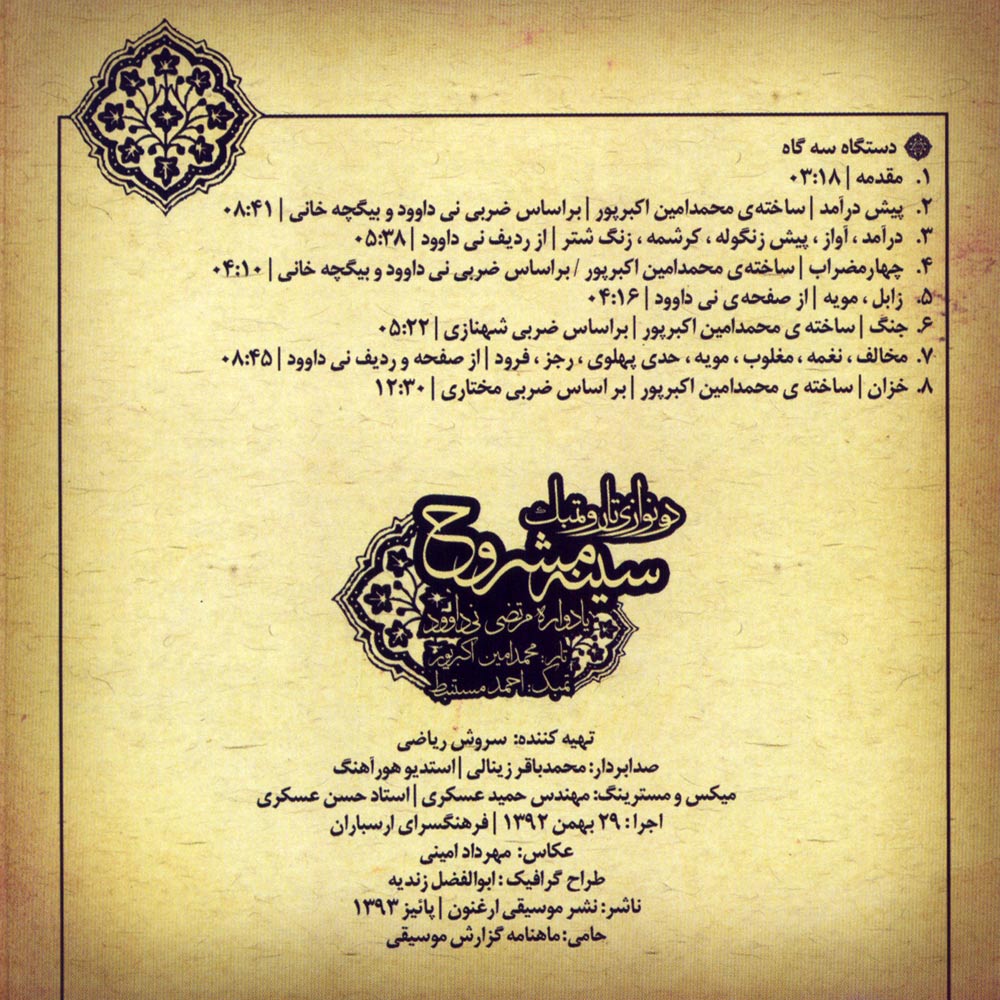 دستگاه سه گاه
۱. مقدمه | ۰۳:۱۸
۲. پیش درآمد | ساخته‌ی محمدامین اکبرپور | براساس ضربی نی داوود و بیگچه خانی | ۰۸:۴۱
۳. درآمد ، آواز ، پیش زنگوله ، کرشمه ، زنگ شتر | از ردیف نی داوود | ۰۵:۳۸
۴. چهارمضراب | ساخته‌ی محمدامین اکبرپور / براساس ضربی نی داوود و بیگچه خانی | ۰۴:۱۰
۵. زابل ، مویه | از صفحه‌ی نی داوود | ۰۴:۱۶
۶. جنگ | ساخته ی محمدامین اکبرپور | براساس ضربی شهنازی | ۰۵:۲۲
۷. مخالف ، نغمه ، مغلوب ، مویه ، حدی پهلوی ، رجز ، فرود | از صفحه و ردیف نی داوود | ۰۸:۴۵
۸. خزان | ساخته ی محمدامین اکبرپور | بر اساس ضربی مختاری | ۱۲:۳۰
دونوازی تار و تمبک
سینه مشروح
یادواره مرتضی نی داوود
تار: محمدامین اکبرپور
تمبک: احمد مستنبط
تهیه کننده: سروش ریاضی
صدابردار: محمدباقر زینالی | استدیو هورآهنگ
میکس و مسترینگ: مهندس حمید عسکری | استاد حسن عسکری
اجرا : ۲۹ بهمن ۱۳۹۲ | فرهنگسرای ارسباران
عکاس: مهرداد امینی
طراح گرافیک : ابوالفضل زندیه
ناشر: نشر موسیقی ارغنون | پائیز ۱۳۹۳
حامی: ماهنامه گزارش موسیقی